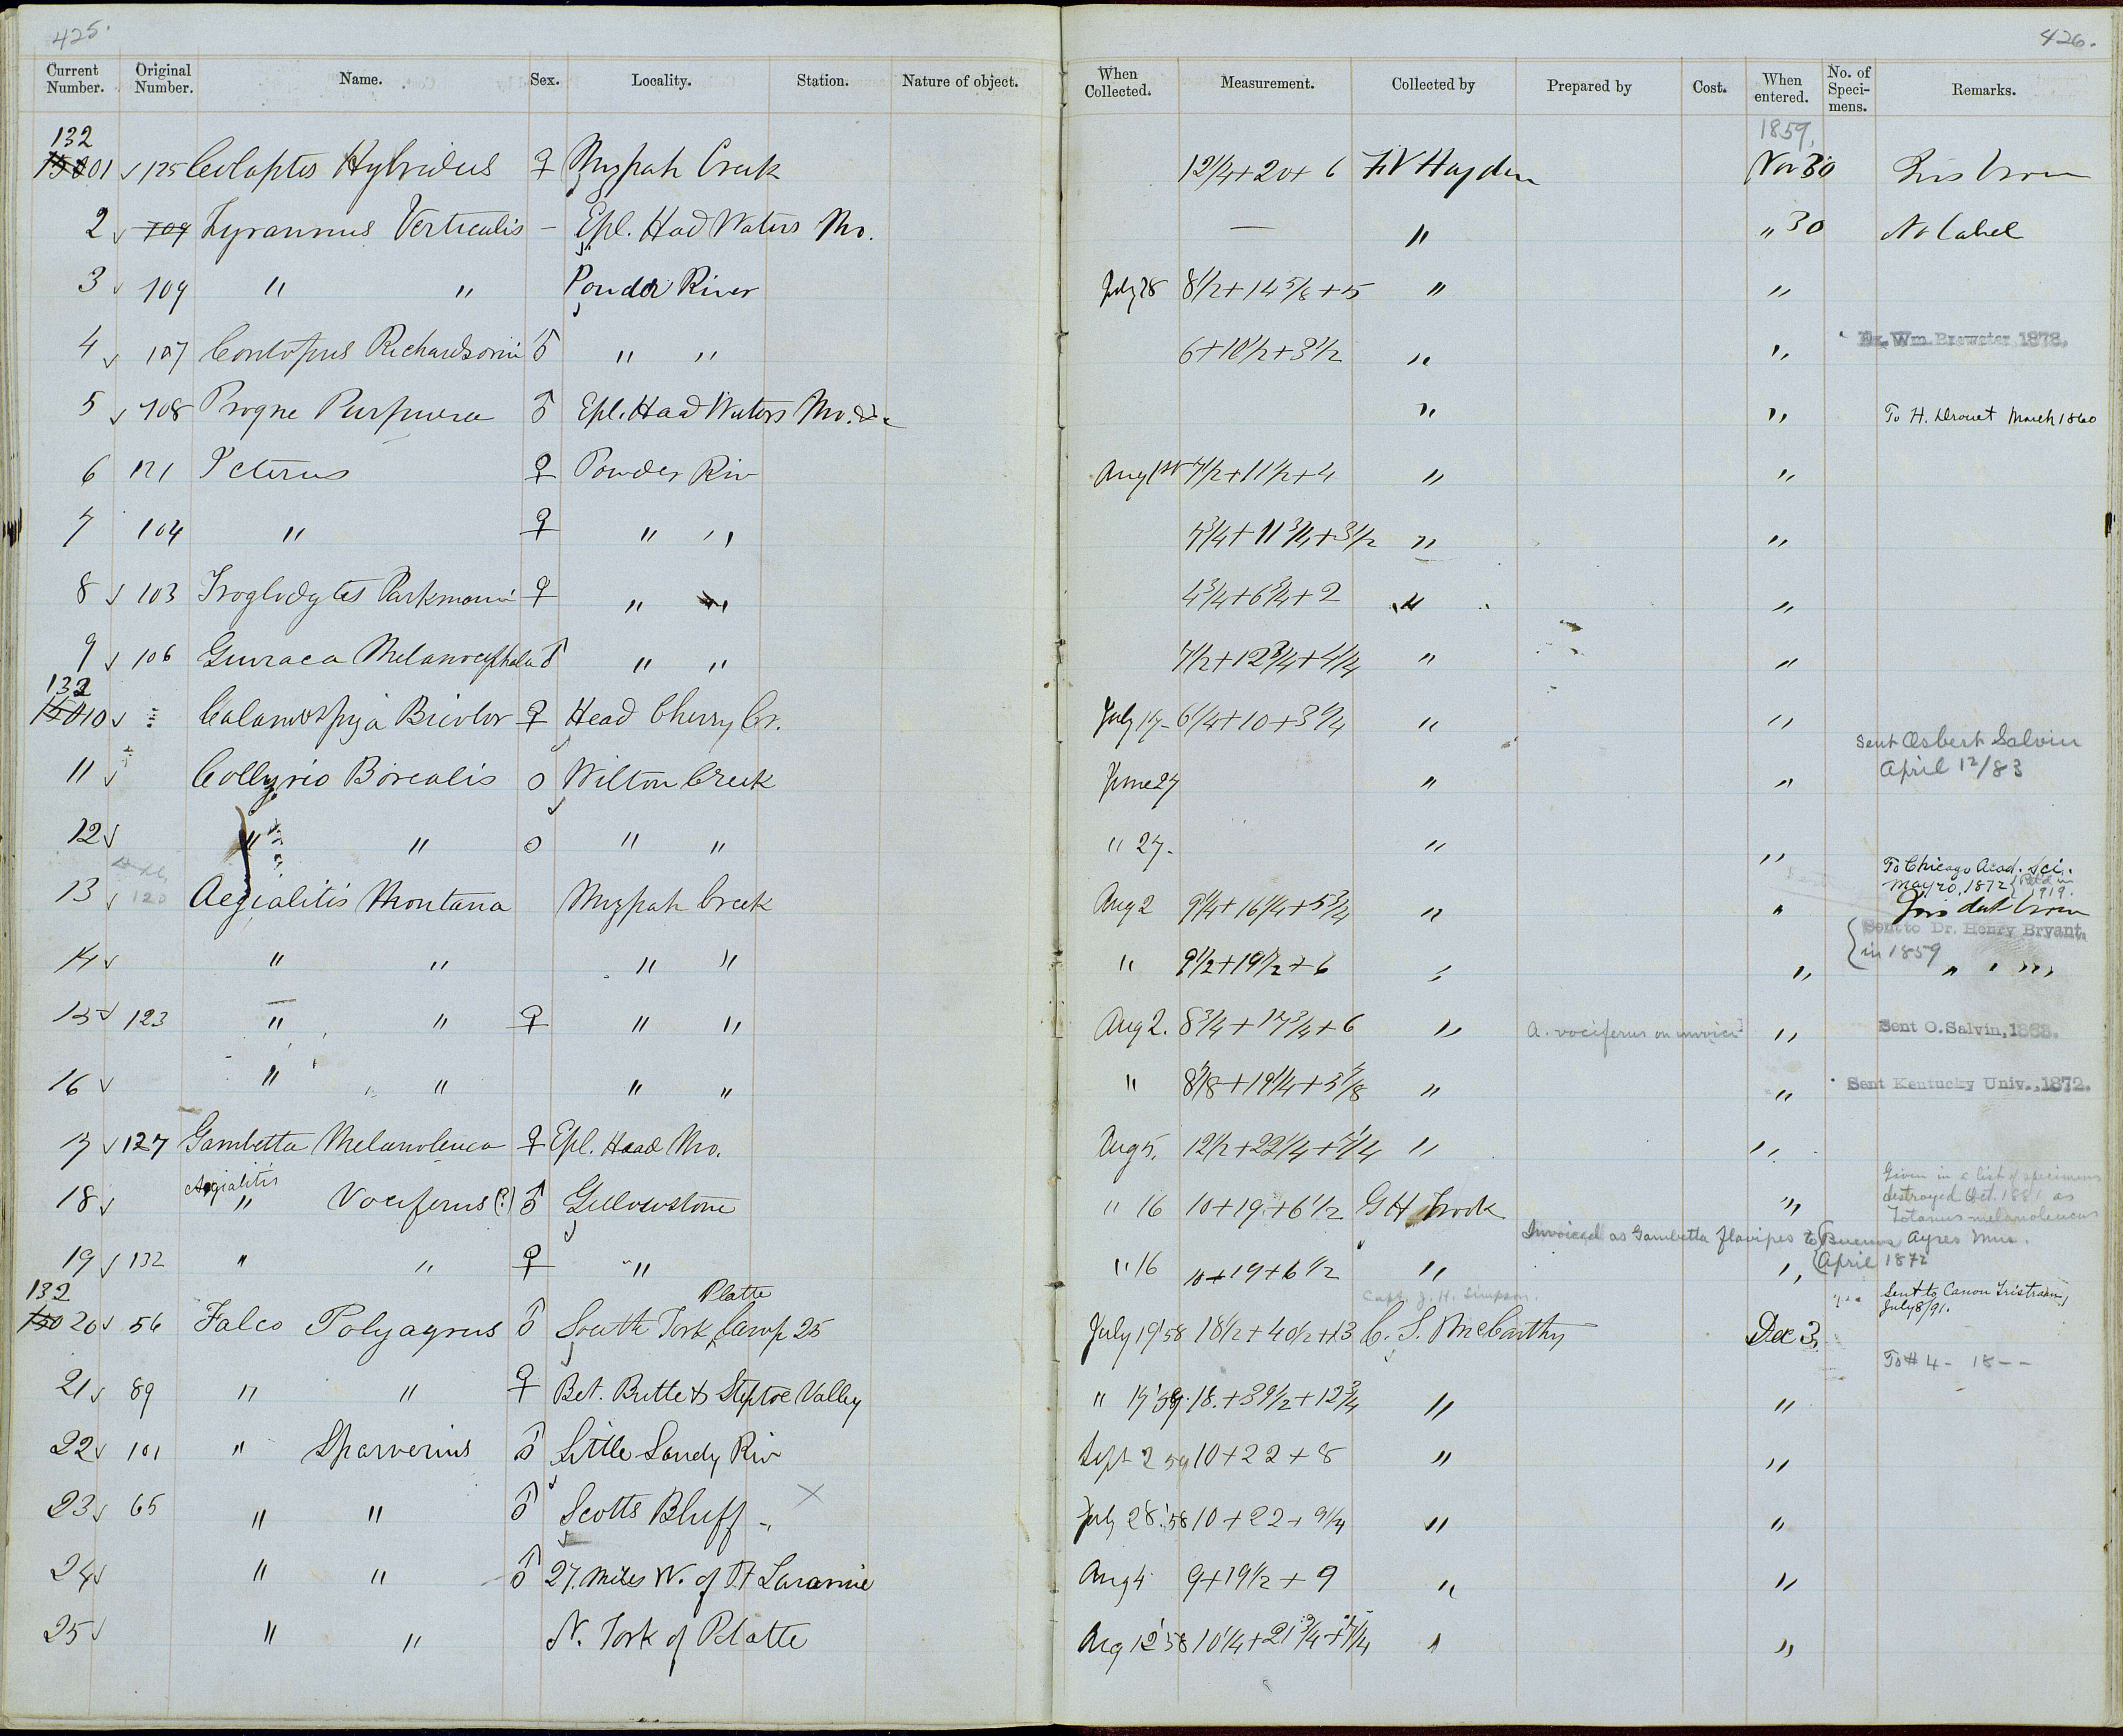 425.
426.
Current Number. Original Number. Name. Sex. Locality. Station. Nature of object. When Collected. Measurement. Collected by Prepared by Cost. When entered. No. of Specimens. Remarks.
1859.
132
15001 125 Colaptes Hybridus ♀ Myzpah Creek 12 1/4+20+6 F V Hayden Nov 30 Iris brown
2 109 Tyrannus Verticalis – Epl. Head Waters Mo. — " " 30 No label
3 109 " " Powder River July 28 8 1/2+14 5/8+5 " "
4 107 Contopus Richardsonii ♂ " " 6+10 1/2+3 1/2 " " Ex. Wm. Brewster, 1878.
5 108 Progne Purpurea ♂ Epl. Head Waters Mo. &c " " To H. Drouet March 1860
6 121 Icterus ♀ Powder Riv Aug 1st 7 1/2+11 1/2+4 " "
7 104 " ♀ " " 7 3/4+11 3/4+3 1/2 " "
8 103 Troglodytes Parkmanii ♀ " " 4 3/4+6 3/4+2 " "
9 106 Guiraca Melanocephala ♂ " " 7 1/2+12 3/4+4 1/4 " "
132
15010 Calamospiza Bicolor ♀ Head Cherry Cr. July 17 – 6 1/4+10+3 1/4 " "
Sent Osbert Salvin
April 12/83
11 Collyrio Borealis o Wilton Creek June 27 " "
12 " " o " " " 27. " "
To Chicago Acad. Sci.
May 20, 1872
1919.
13 120 Aegialitis Montana Myzpah Creek Aug 2 9 1/4+16 1/4+5 3/4 " " Iris dark brown
Sent to Dr. Henry Bryant.
in 1859
14 " " " " " 9 1/2+19 1/2+6 " " " " "
15 123 " " ♀ " " Aug 2. 8 3/4+17 3/4+6 " A. vociferus on invoice " Sent O. Salvin, 1868.
16 " " " " " 8 3/8+19 1/4+5 7/8 " " Sent Kentucky Univ., 1872.
17 127 Gambetta Melanoleuca ♀ Epl. Head Mo. Aug 5. 12 1/2+22 1/4+7 1/4 " "
Given in a list of specimens
destroyed Oct. 1881 as
Totanus melanoleucus
Aegialitis
18 " Vociferus (?) ♂ Yellowstone " 16 10+19+6 1/2 G H Trook "
Invoiced as Gambetta flavipes to Buenos Ayres Mus.
April 1872
19 132 " " ♀ " " 16 10+19+6 1/2 " "
Capt. J. H. Simpson.
Sent to Canon Tristram,
July 8/91.
132
Platte
15020 56 Falco Polyagrus ♂ South Fork, Camp 25 July 19 '58 18 1/2+40 1/2+13 C. S. McCarthy Dec 3.
To # 4 - 18 --
21 89 " " ♀ Bet. Butte & Steptoe Valley " 19 '59. 18.+39 1/2+12 3/4 " "
22 101 " Sparverius ♂ Little Sandy Riv Sept 2 59 10+22+8 " "
23 65 " " ♂ Scotts Bluff July 28 '58 10+22+9 1/4 " "
24 " " ♂ 27. Miles W. of Ft Laramie Aug 4 9+19 1/2+9 " "
25 " " N. Fork of Platte Aug 12 '58 10 1/4+21 3/4+7 1/4 " "